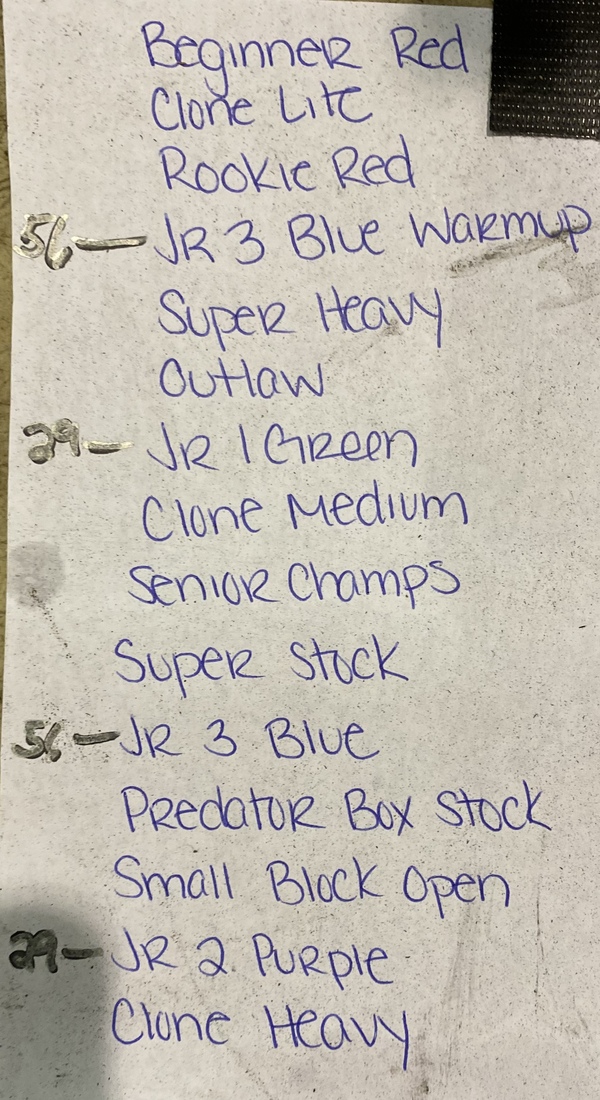 Beginner Red
Clone Lite
Rookie Red
56 — JR 3 Blue Warmup
Super Heavy
Outlaw
29 — JR 1 Green
Clone Medium
Senior Champs
Super Stock
56 — JR 3 Blue
Predator Box Stock
Small Block Open
29 — JR 2 Purple
Clone Heavy